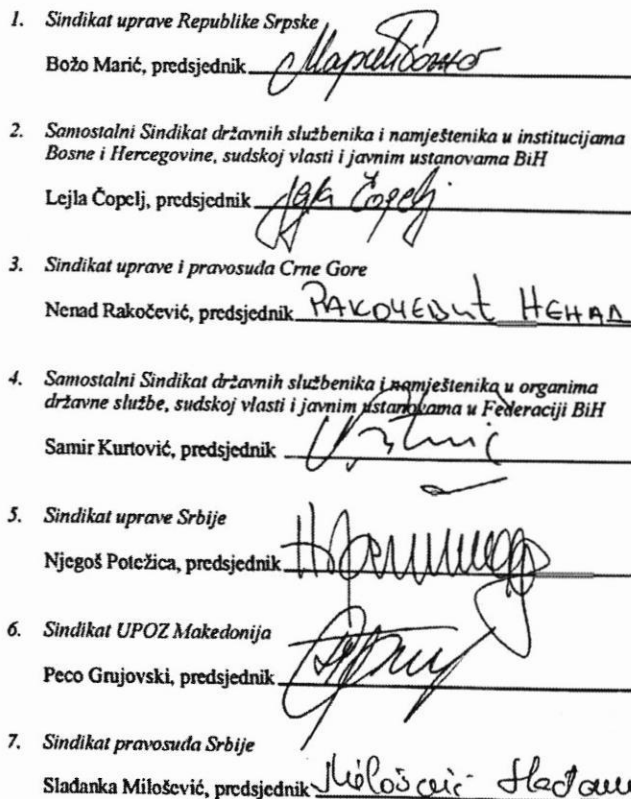 1. Sindikat uprave Republike Srpske
Božo Marić, predsjednik Марић Божо
2. Samostalni Sindikat državnih službenika i namještenika u institucijama
Bosne i Hercegovine, sudskoj vlasti i javnim ustanovama BiH
Lejla Čopelj, predsjednik Lejla Čopelj
3. Sindikat uprave i pravosuđa Crne Gore
Nenad Rakočević, predsjednik РАКОЧЕВИЋ НЕНАД
4. Samostalni Sindikat državnih službenika i namještenika u organima
državne službe, sudskoj vlasti i javnim ustanovama u Federaciji BiH
Samir Kurtović, predsjednik
5. Sindikat uprave Srbije
Njegoš Potežica, predsjednik
6. Sindikat UPOZ Makedonija
Peco Grujovski, predsjednik
7. Sindikat pravosuđa Srbije
Slađanka Milošević, predsjednik Milošević